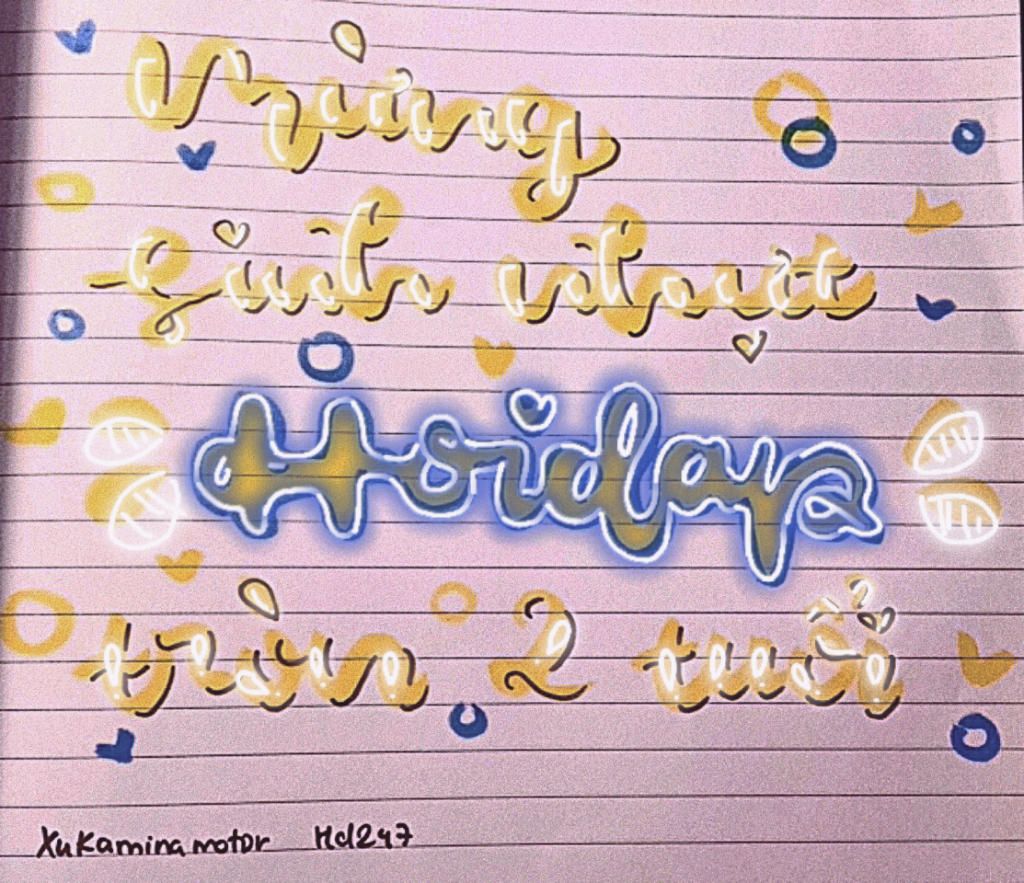 Mừng
sinh nhật
Hoiday
tròn 2 tuổi
XuKamina motor Hd247